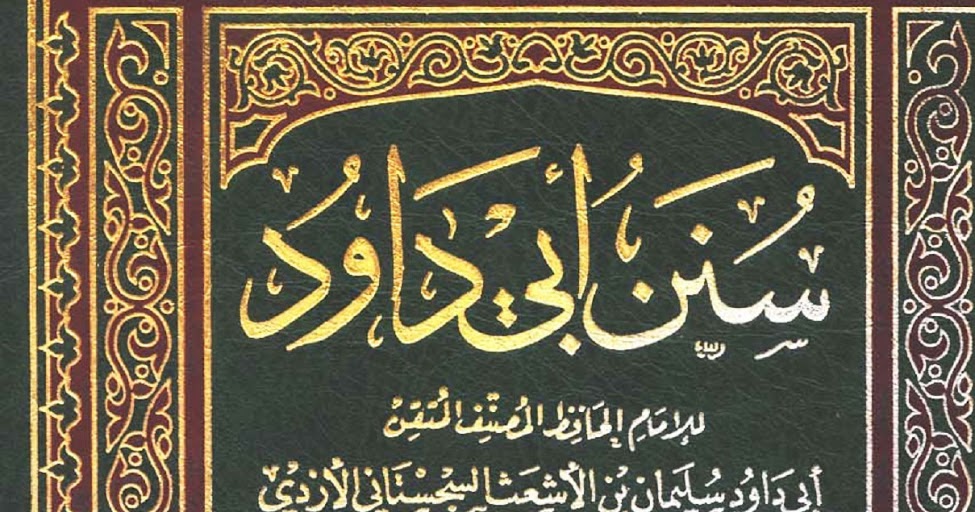 سُنَن أَبِي دَاوُد
للإِمَامِ الحَافِظِ المُصَنِّفِ المُتْقِنْ
أَبِي دَاوُد سُلَيمَان بْن الأَشْعَث السِّجِسْتَانِي الأَزْدِيْ